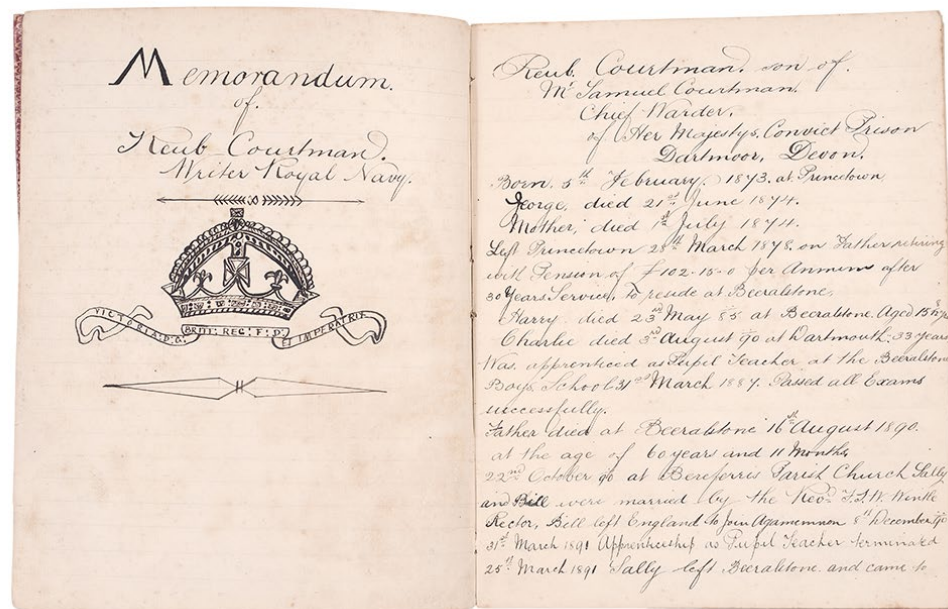 Memorandum.
of.
Reub Courtman.
Writer Royal Navy.
VICTORIA. D.G.
BRITT: REG: F: D:
ET IMPERATRIX
Reub. Courtman. son of.
Mr Samuel Courtman.
Chief Warder.
of Her Majestys. Convict Prison
Dartmoor, Devon.
Born. 5th February. 1873. at Princetown
George, died 21st June 1874.
Mother, died 1st July 1874.
Left Princetown 28th March 1878, on Father retiring
with Pension of £102-15-0 per Annum after
30 Years Service, to reside at Beeralstone.
Harry died 23rd May 85 at Beeralstone. Aged 15
Charlie died 3rd August 90 at Dartmouth. 33 years
Was apprenticed as Pupil Teacher at the Beeralston
Boys School 31st March 1887. Passed all Exams
successfully.
Father died at Beeralstone 16th August 1890.
at the age of 60 years and 11 Months,
22nd October 90 at Bereferris Parish Church Sally
and Bill were married by the Revd F.S.W. Wintle
Rector, Bill left England to join Agamemnon 8th December 90
31st March 1891 Apprenticeship as Pupil Teacher terminated
25th March 1891 Sally left Beeralstone. and came to